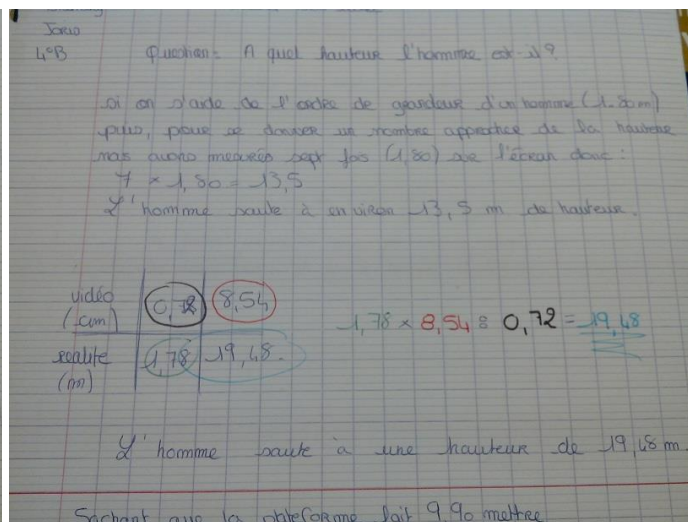 4°B
Question: A quel hauteur l'homme est-il?
si on s'aide de l'ordre de grandeur d'un homme (1.80m)
puis, pour se donner un nombre approché de la hauteur
nous avons mesurés sept fois (1,80) sur l'écran donc:
7 × 1,80 = 13,5
L'homme saute à environ 13,5 m de hauteur.
vidéo (cm) 0,72 8,54
réalité (m) 1,78 19,48
1,78 × 8,54 : 0,72 = 19,48
L'homme saute à une hauteur de 19,48 m
Sachant que la plateforme fait 9.90 mettre